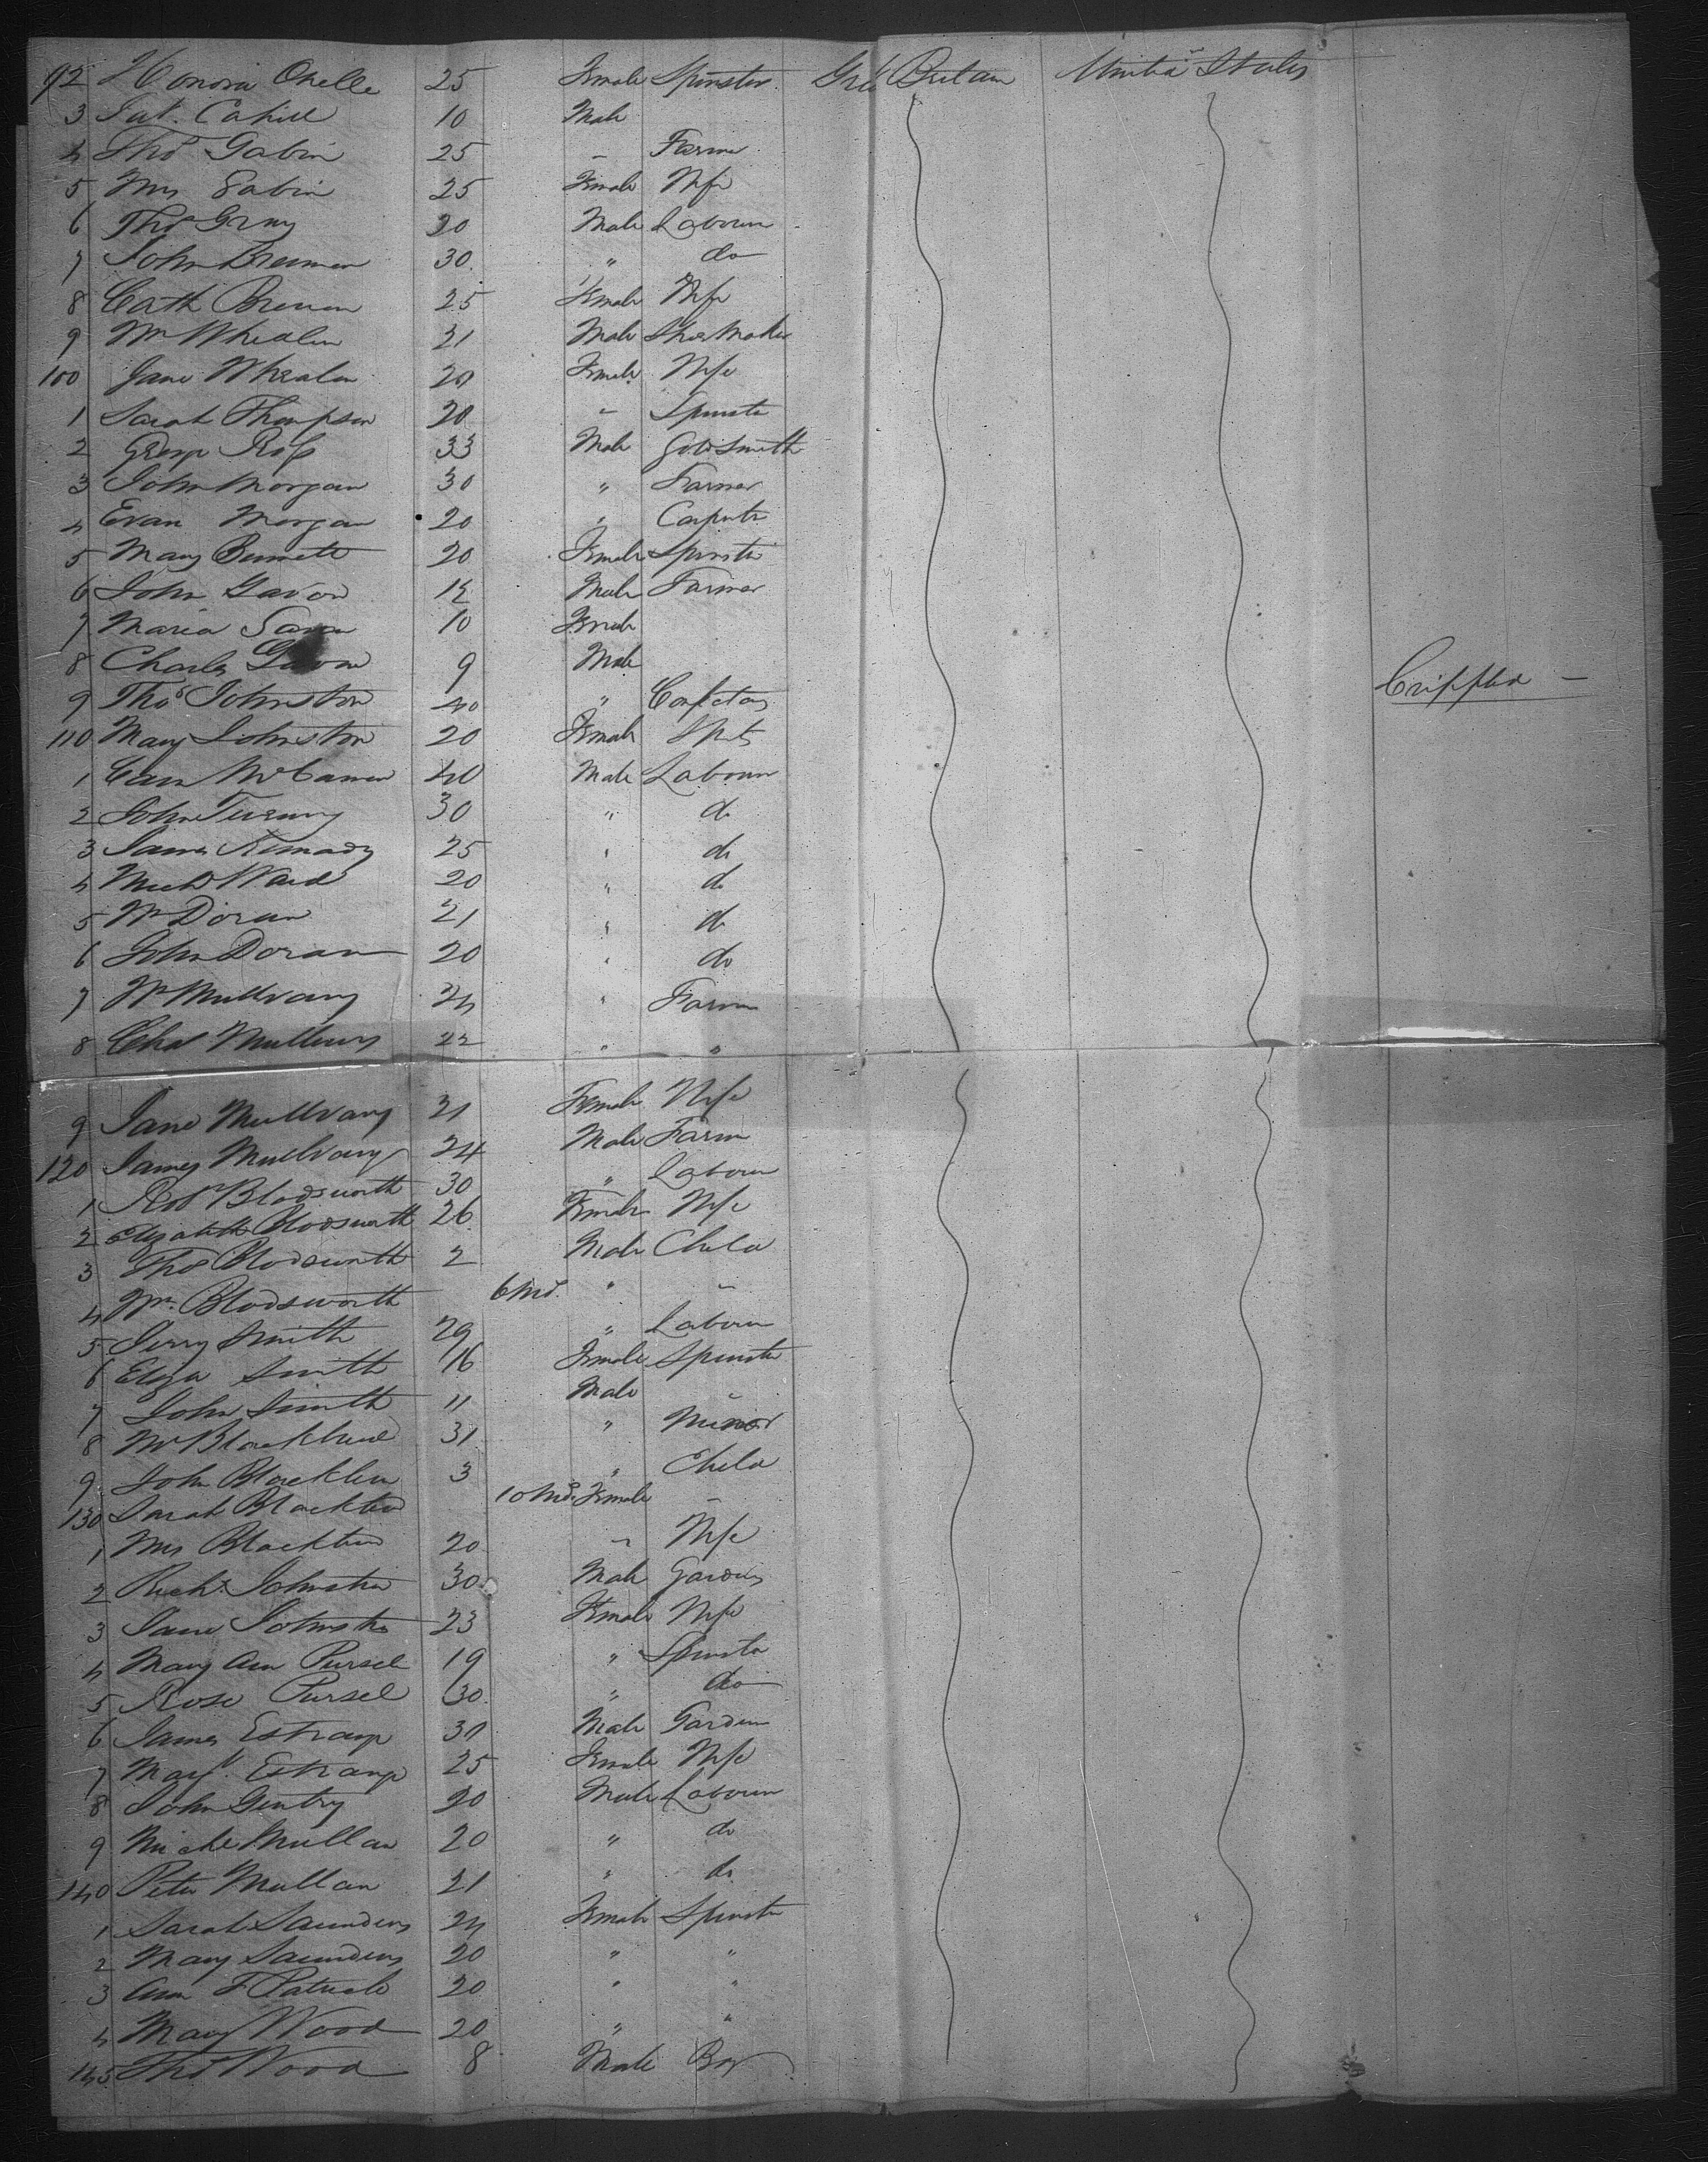 92 Honora Okelle 25 Female Spinster Grt Britain United States
3 Pat. Cahill 10 Male
4 Thos Gabin 25 " Farmer
5 Mrs Gabin 25 Female Wife
6 Thos Gray 20 Male Labourer
7 John Brennan 30 " do
8 Cath Brennan 25 Female Wife
9 Wm Whealan 21 Male Shoemaker
100 Jane Whealan 20 Female Wife
1 Sarah Thompson 20 " Spinster
2 George Ross 33 Male Goldsmith
3 John Morgan 30 " Farmer
4 Evan Morgan 20 " Carpenter
5 Mary Bennett 20 Female Spinster
6 John Gavon 12 Male Farmer
7 Maria Gavon 10 Female
8 Charles Gavon 9 Male
9 Thos Johnston 40 " Crippled -
110 Mary Johnston 20 Female
1 McCannon 40 Male Labourer
2 John 30 " do
3 James Kennady 25 " do
4 Michl Ward 20 " do
5 Wm Doran 21 " do
6 John Doran 20 " do
7 Wm Mullvany 24 " Farmer
8 Chas 22 " "
9 Jane Mullvany 21 Female Wife
120 James Mullvany 24 Male Farm
1 Robt Blodsworth 30 " Labourer
2 Elizabeth Blodsworth 26 Female Wife
3 Thos Blodsworth 2 Male Child
4 Wm. Blodsworth 6 Mo. " "
5 Jerry Smith 29 " Labourer
6 Eliza Smith 16 Female Spinster
7 John Smith 11 Male "
8 31 " Minor
9 John 3 " Child
130 Sarah 10 Mo. Female "
1 Mrs 20 " Wife
2 Richd Johnston 30 Male Gardener
3 Jane Johnston 23 Female Wife
4 Mary Ann Pursel 19 " Spinster
5 Rose Pursel 30 " do
6 James Estrange 30 Male Gardener
7 Margt Estrange 25 Female Wife
8 John Gentry 20 Male Labourer
9 Michl Mullan 20 " do
140 Peter Mullan 21 " do
1 Sarah Saunders 24 Female Spinster
2 Mary Saunders 20 " "
3 Ann 20 " "
4 Mary Wood 20 " "
145 Thos Wood 8 Male Boy